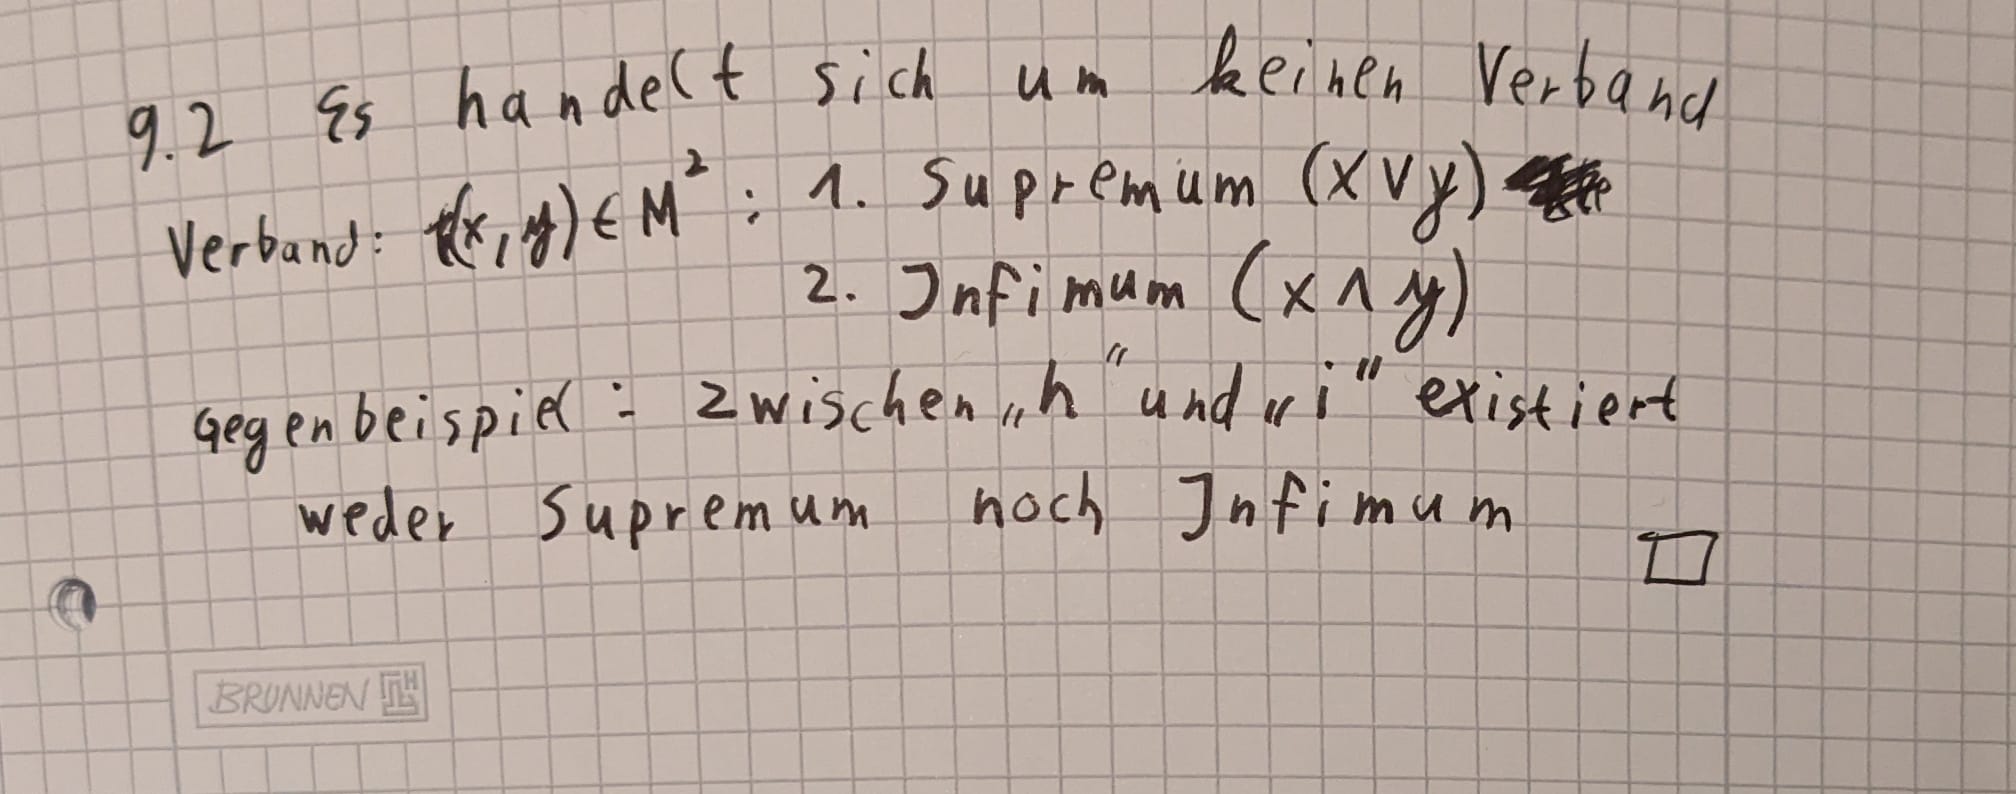 9.2 Es handelt sich um keinen Verband
Verband: (x,y) ∈ M² : 1. Supremum (x ∨ y)
2. Infimum (x ∧ y)
Gegenbeispiel : zwischen „h“ und „i“ existiert
weder Supremum noch Infimum □
BRUNNEN